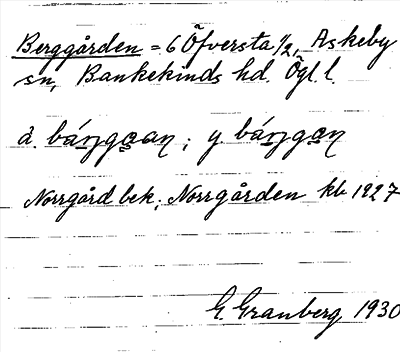 Berggården = 6 Öfversta 1/2, Askeby
sn, Bankekinds hd. Ögl. l.
ä. báŋgɑan; y. báŋgɑn
Norrgård bek; Norrgården kb 1927
G. Granberg 1930